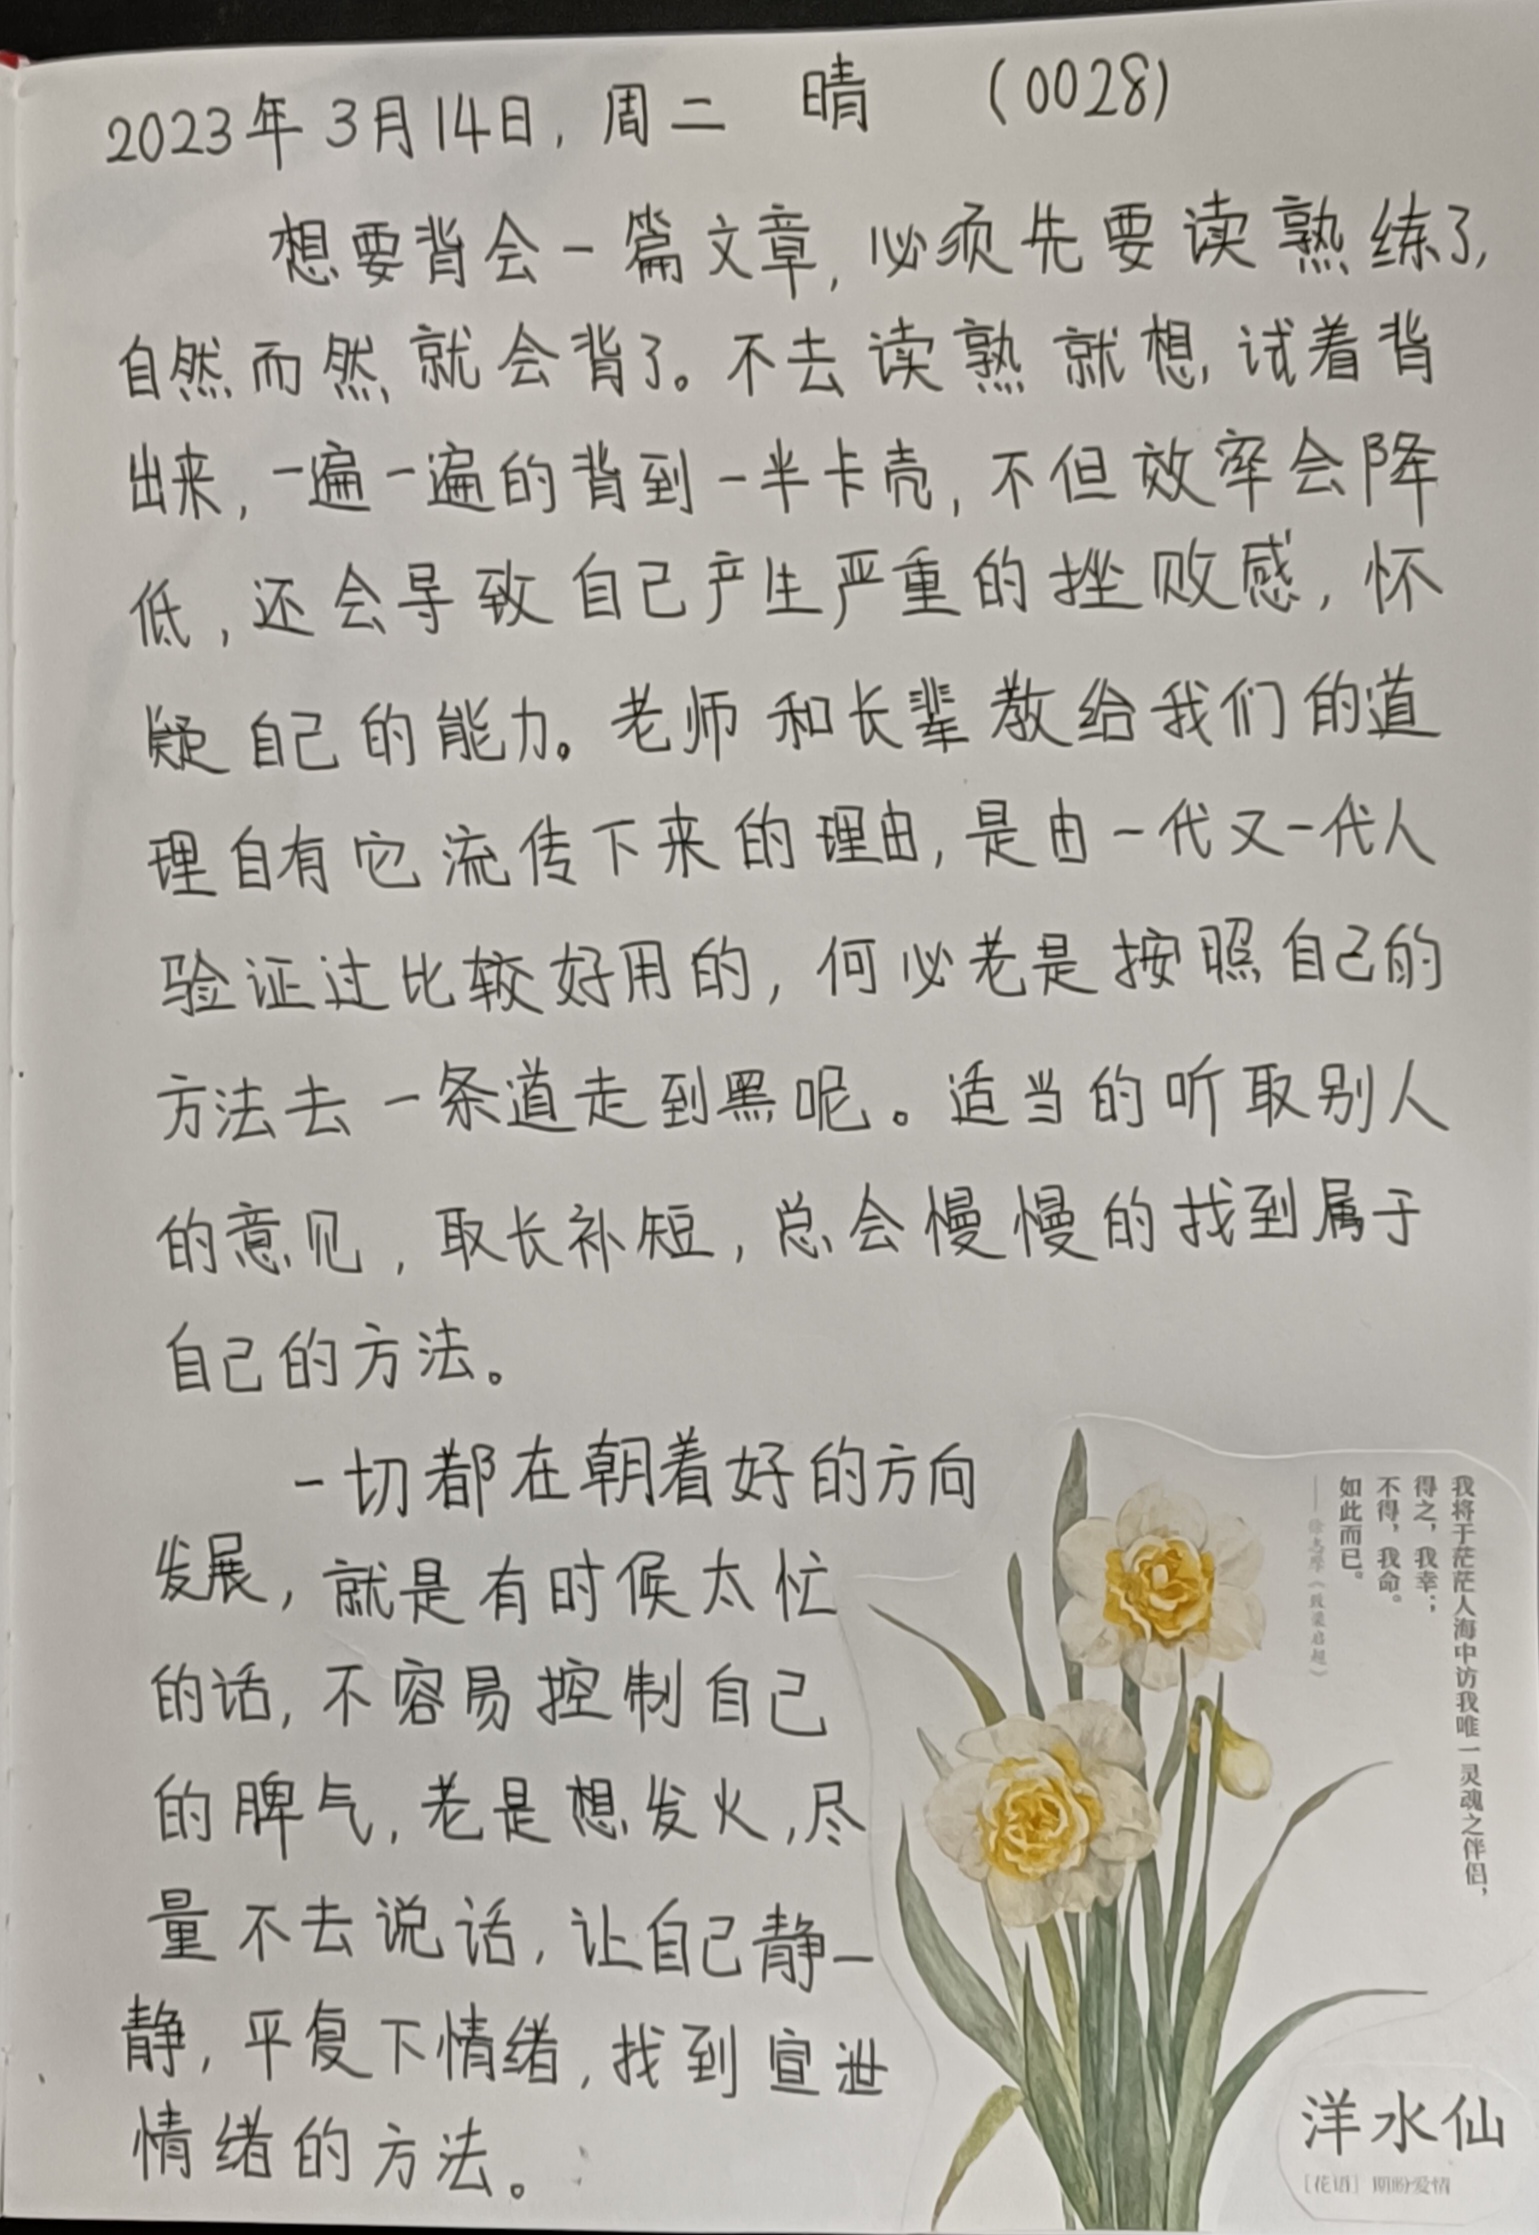 2023年3月14日，周二 晴 （0028）
想要背会一篇文章，必须先要读熟练了，
自然而然，就会背了。不去读熟就想，试着背
出来，一遍一遍的背到一半卡壳，不但效率会降
低，还会导致自己产生严重的挫败感，怀
疑自己的能力。老师和长辈教给我们的道
理自有它流传下来的理由，是由一代又一代人
验证过比较好用的，何必老是按照自己的
方法去一条道走到黑呢。适当的听取别人
的意见，取长补短，总会慢慢的找到属于
自己的方法。
一切都在朝着好的方向
发展，就是有时候太忙
的话，不容易控制自己
的脾气，老是想发火，尽
量不去说话，让自己静一
静，平复下情绪，找到宣泄
情绪的方法。
我将于茫茫人海中访我唯一灵魂之伴侣，
得之，我幸；
不得，我命。
如此而已。
——徐志摩《致梁启超》
洋水仙
［花语］期盼爱情